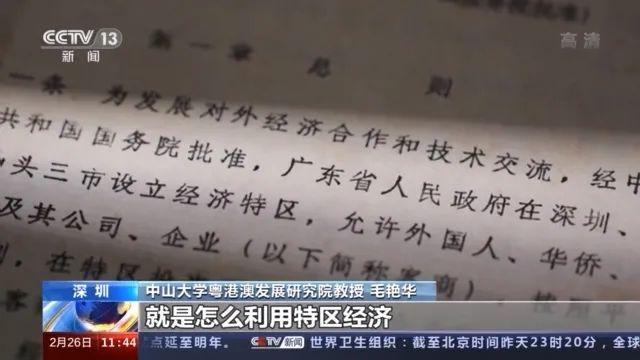 CCTV 13
新闻
高清
第一章 总 则
一条 为发展对外经济合作和技术交流，经中
共和国国务院批准，广东省人民政府在深圳、
头三市设立经济特区，允许外国人、华侨、
及其公司、企业（以下简称客商）
在特区投
深圳
中山大学粤港澳发展研究院教授 毛艳华
就是怎么利用特区经济
2月26日 11:44 点延至明年。 CCTV新闻 世界卫生组织：截至北京时间昨天23时20分，全球